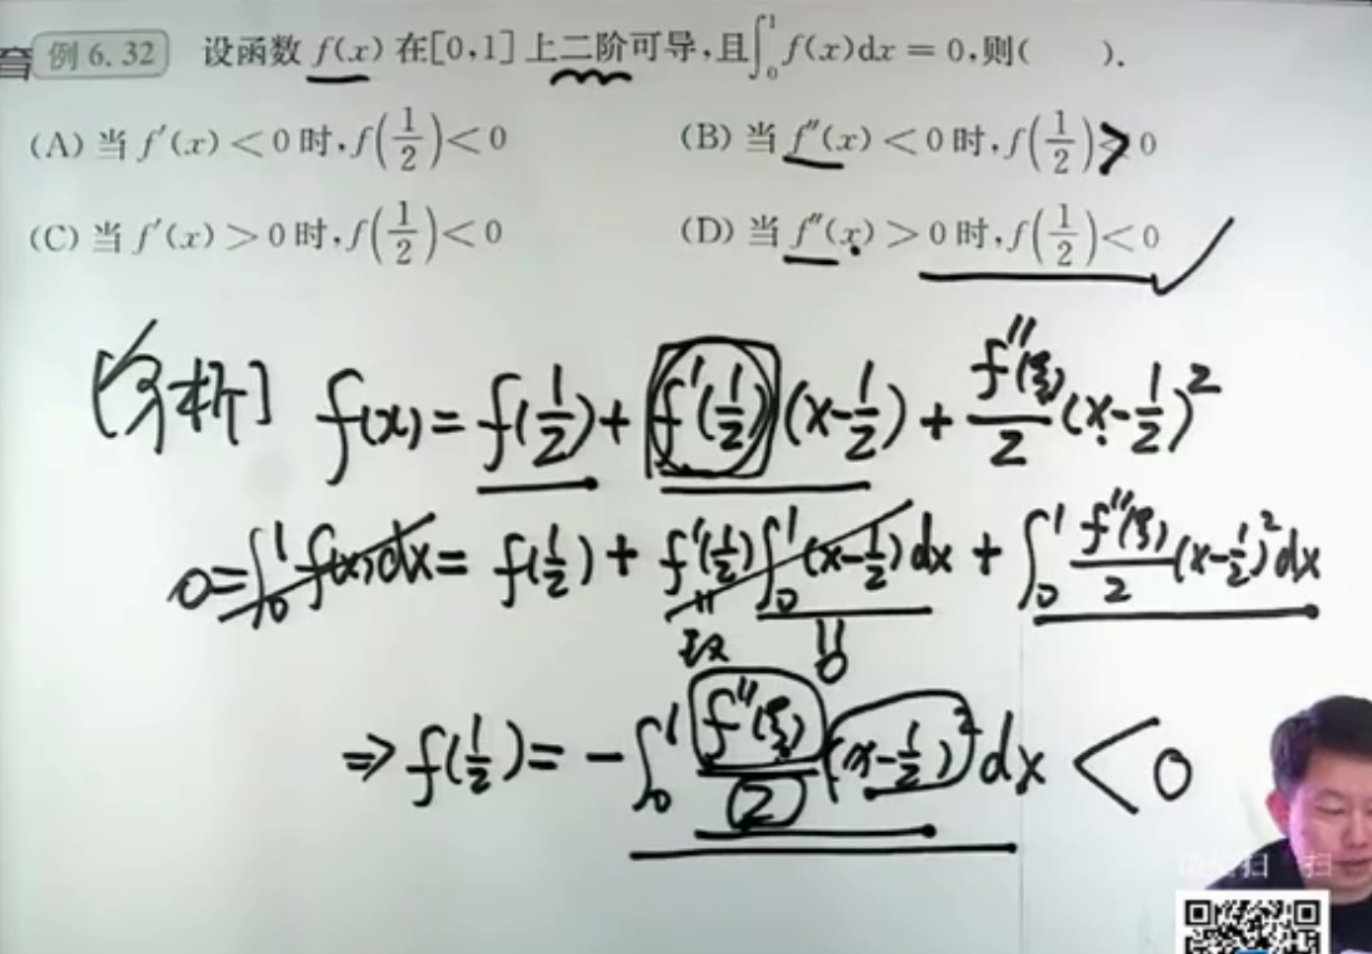 例 6.32 设函数 f(x) 在[0,1]上二阶可导,且∫₀¹ f(x)dx = 0,则( ).
(A) 当 f′(x) < 0 时, f(1/2) < 0 (B) 当 f″(x) < 0 时, f(1/2) > 0
(C) 当 f′(x) > 0 时, f(1/2) < 0 (D) 当 f″(x) > 0 时, f(1/2) < 0 ✓
[分析] f(x) = f(1/2) + f′(1/2)(x-1/2) + f″(ξ)/2 (x-1/2)²
0 = ∫₀¹ f(x)dx = f(1/2) + f′(1/2) ∫₀¹ (x-1/2)dx + ∫₀¹ f″(ξ)/2 (x-1/2)² dx
0
⇒ f(1/2) = -∫₀¹ f″(ξ)/2 (x-1/2)² dx < 0
扫 扫